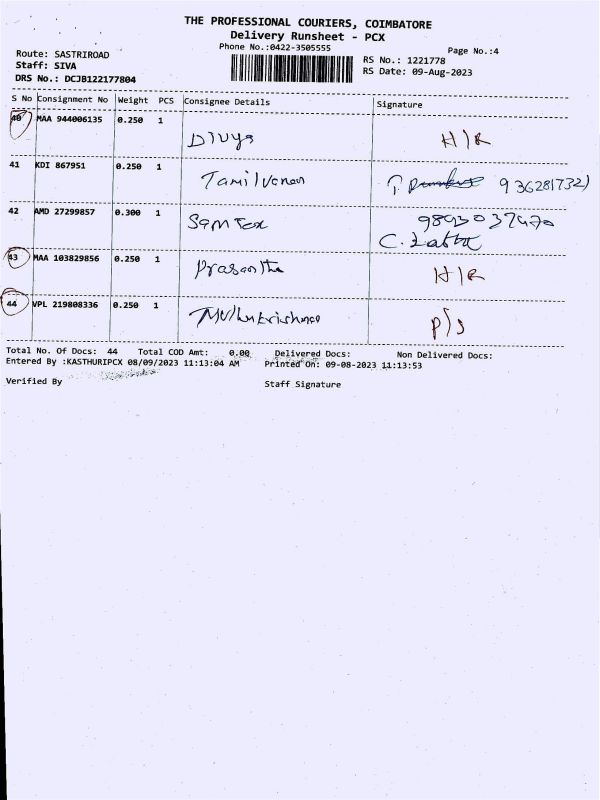 THE PROFESSIONAL COURIERS, COIMBATORE
Delivery Runsheet - PCX
Phone No.:0422-3505555
Page No.:4
Route: SASTRIROAD
RS No.: 1221778
Staff: SIVA
RS Date: 09-Aug-2023
DRS No.: DCJB122177804
S No Consignment No Weight PCS Consignee Details Signature
40 MAA 944006135 0.250 1 Divya H/R
41 KDI 867951 0.250 1 Tamilvanan
42 AMD 27299857 0.300 1 Sam Tex
C.
43 MAA 103829856 0.250 1 Prasantha H/R
44 VPL 219808336 0.250 1
Total No. Of Docs: 44 Total COD Amt: 0.00 Delivered Docs: Non Delivered Docs:
Entered By :KASTHURIPCX 08/09/2023 11:13:04 AM Printed On: 09-08-2023 11:13:53
Verified By Staff Signature